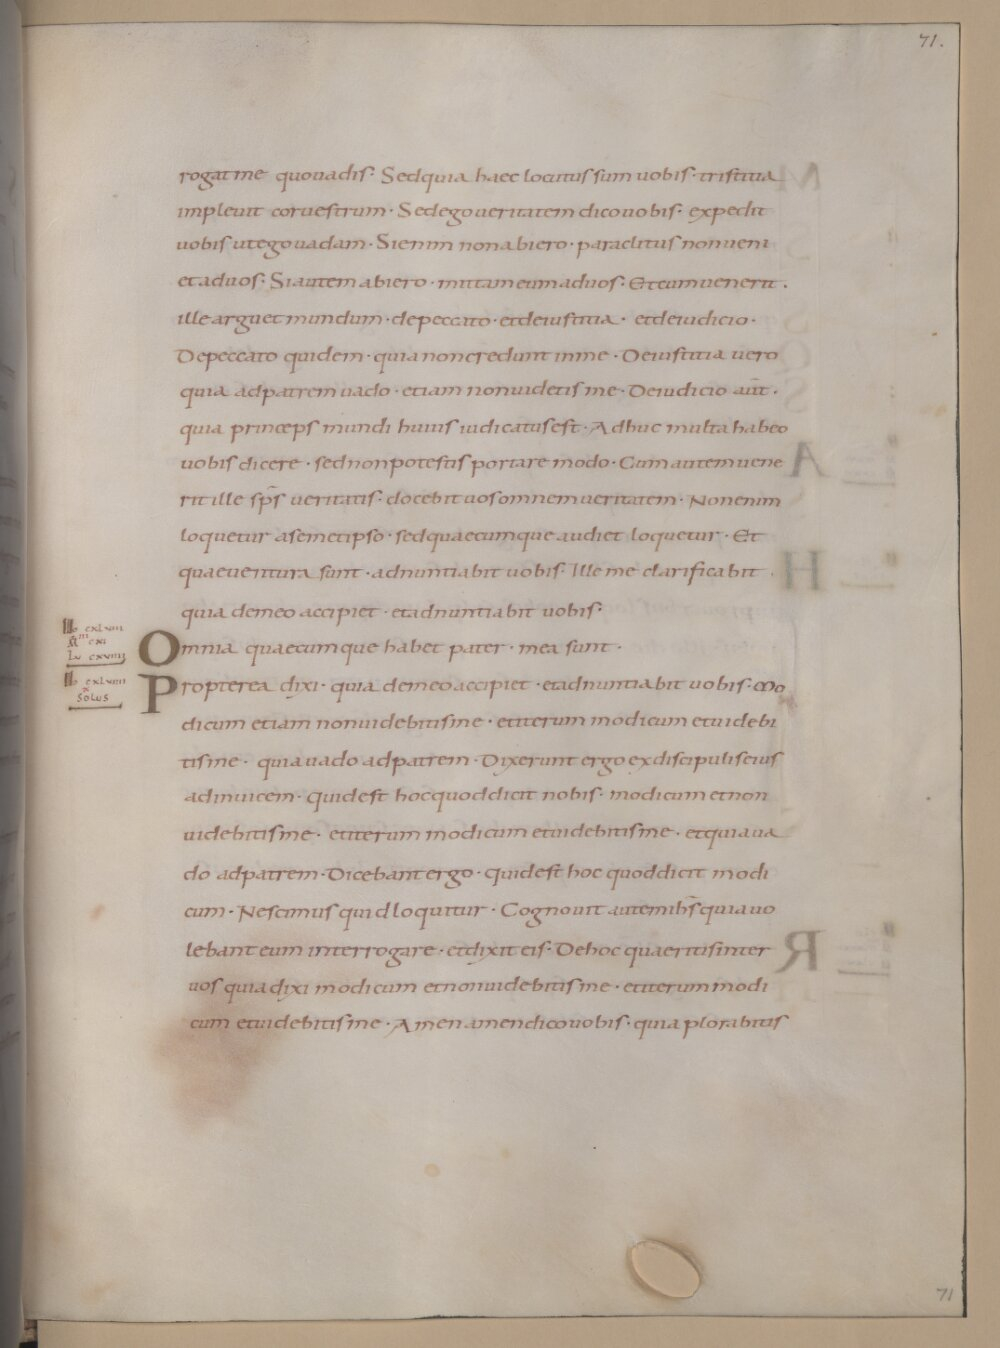 71.
rogat me quo uadis· Sed quia haec locutus sum uobis· tristitia
impleuit cor uestrum· Sed ego ueritatem dico uobis· expedit
uobis ut ego uadam· Si enim non abiero· paraclitus non ueni
et ad uos· Si autem abiero· mittam eum ad uos· Et cum uenerit·
ille arguet mundum· de peccato· et de iustitia· et de iudicio·
De peccato quidem· quia non credunt in me· De iustitia uero
quia ad patrem uado· et iam non uidetis me· De iudicio aūt·
quia princeps mundi huius iudicatus est· Adhuc multa habeo
uobis dicere· sed non potestis portare modo· Cum autem uene
rit ille sp̄s ueritatis· docebit uos omnem ueritatem· Non enim
loquetur a semetipso· sed quaecumque audiet loquetur· Et
quae uentura sunt· adnuntiabit uobis· Ille me clarificabit·
quia de meo accipiet· et adnuntiabit uobis·
Omnia quaecumque habet pater· mea sunt·
Propterea dixi· quia de meo accipiet· et adnuntiabit uobis· Mo
dicum et iam non uidebitis me· et iterum modicum et uidebi
tis me· quia uado ad patrem· Dixerunt ergo ex discipulis eius
ad inuicem· quid est hoc quod dicit nobis· modicum et non
uidebitis me· et iterum modicum et uidebitis me· et quia ua
do ad patrem· Dicebant ergo· quid est hoc quod dicit modi
cum· Nescimus quid loquitur· Cognouit autem ih̄s quia uo
lebant eum interrogare· et dixit eis· De hoc quaeritis inter
uos quia dixi modicum et non uidebitis me· et iterum modi
cum et uidebitis me· Amen amen dico uobis· quia plorabitis
cxlviii
cxi
Lu cxviiii
cxlviiii
Solus
71